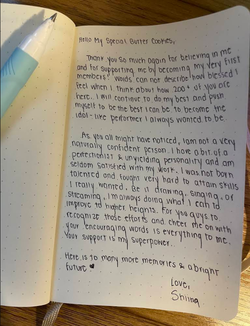 Hello My Special Butter Cookies,
Thank you so much again for believing in me
and for supporting me by becoming my very first
members! Words can not describe how blessed I
feel when I think about how 200+ of you are
here. I will continue to do my best and push
myself to be the best I can be to become the
idol-like performer I always wanted to be.
As you all might have noticed, I am not a very
naturally confident person. I have a bit of a
perfectionist & unyielding personality and am
seldom satisfied with my work. I was not born
talented and fought very hard to attain skills
I really wanted. Be it drawing, singing, or
streaming, I'm always doing what I can to
improve to higher heights. For you guys to
recognize those efforts and cheer me on with
your encouraging words is everything to me.
Your support is my superpower.
Here is to many more memories & a bright
future
Love,
Shiina